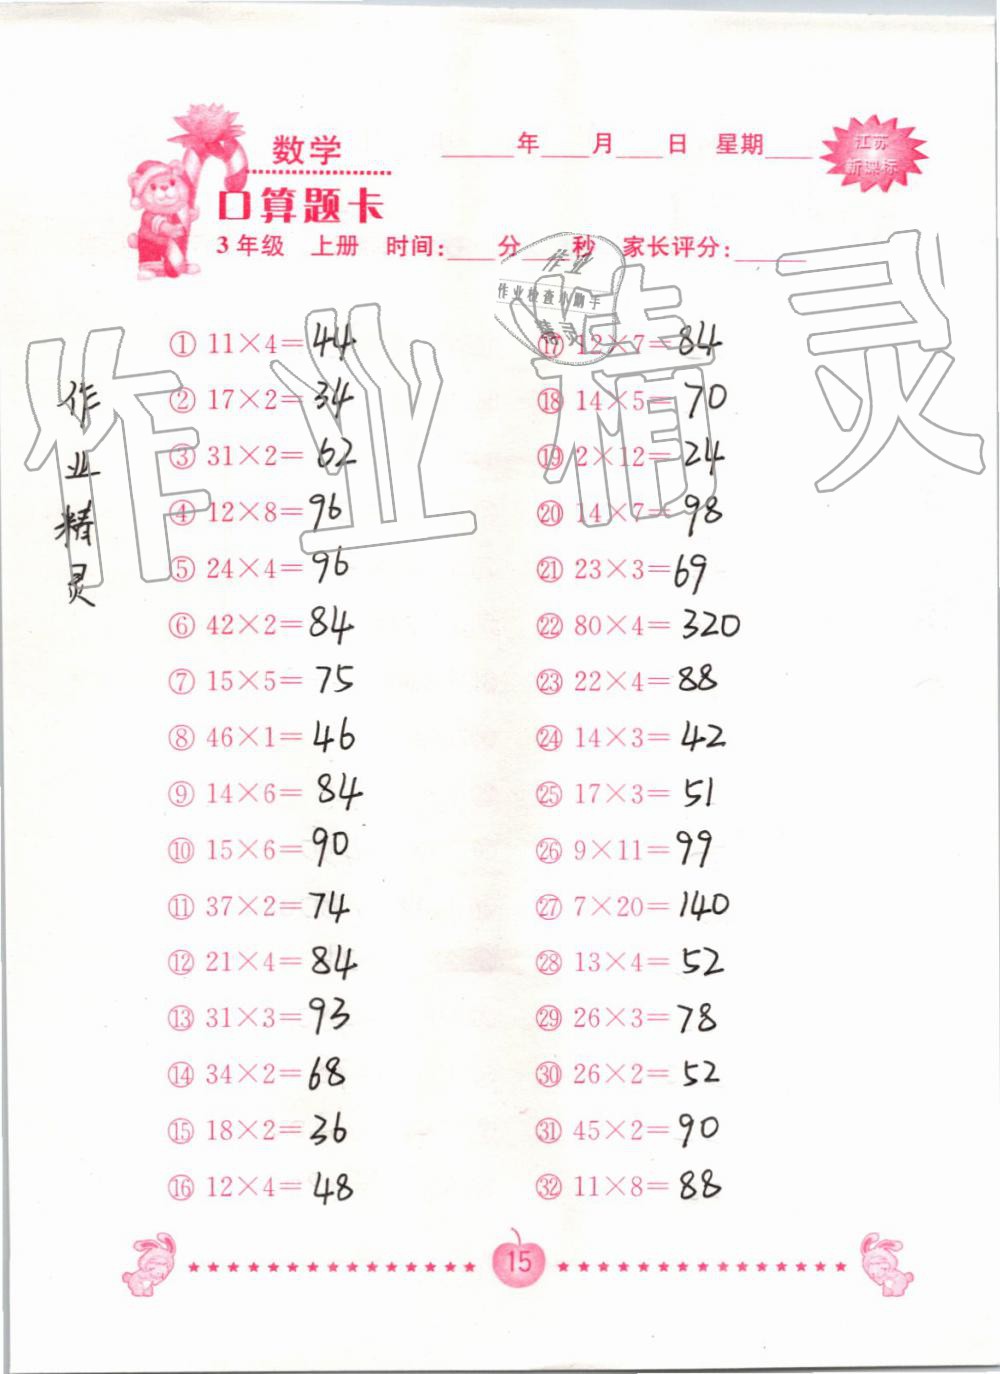 数学
____年____月____日 星期____
江苏
新课标
口算题卡
3年级 上册 时间：____分____秒 家长评分：______
作业
作业检查小助手
精灵
作业精灵
作业精灵
① 11×4=44
② 17×2=34
③ 31×2=62
④ 12×8=96
⑤ 24×4=96
⑥ 42×2=84
⑦ 15×5=75
⑧ 46×1=46
⑨ 14×6=84
⑩ 15×6=90
⑪ 37×2=74
⑫ 21×4=84
⑬ 31×3=93
⑭ 34×2=68
⑮ 18×2=36
⑯ 12×4=48
⑰ 12×7=84
⑱ 14×5=70
⑲ 2×12=24
⑳ 14×7=98
㉑ 23×3=69
㉒ 80×4=320
㉓ 22×4=88
㉔ 14×3=42
㉕ 17×3=51
㉖ 9×11=99
㉗ 7×20=140
㉘ 13×4=52
㉙ 26×3=78
㉚ 26×2=52
㉛ 45×2=90
㉜ 11×8=88
15